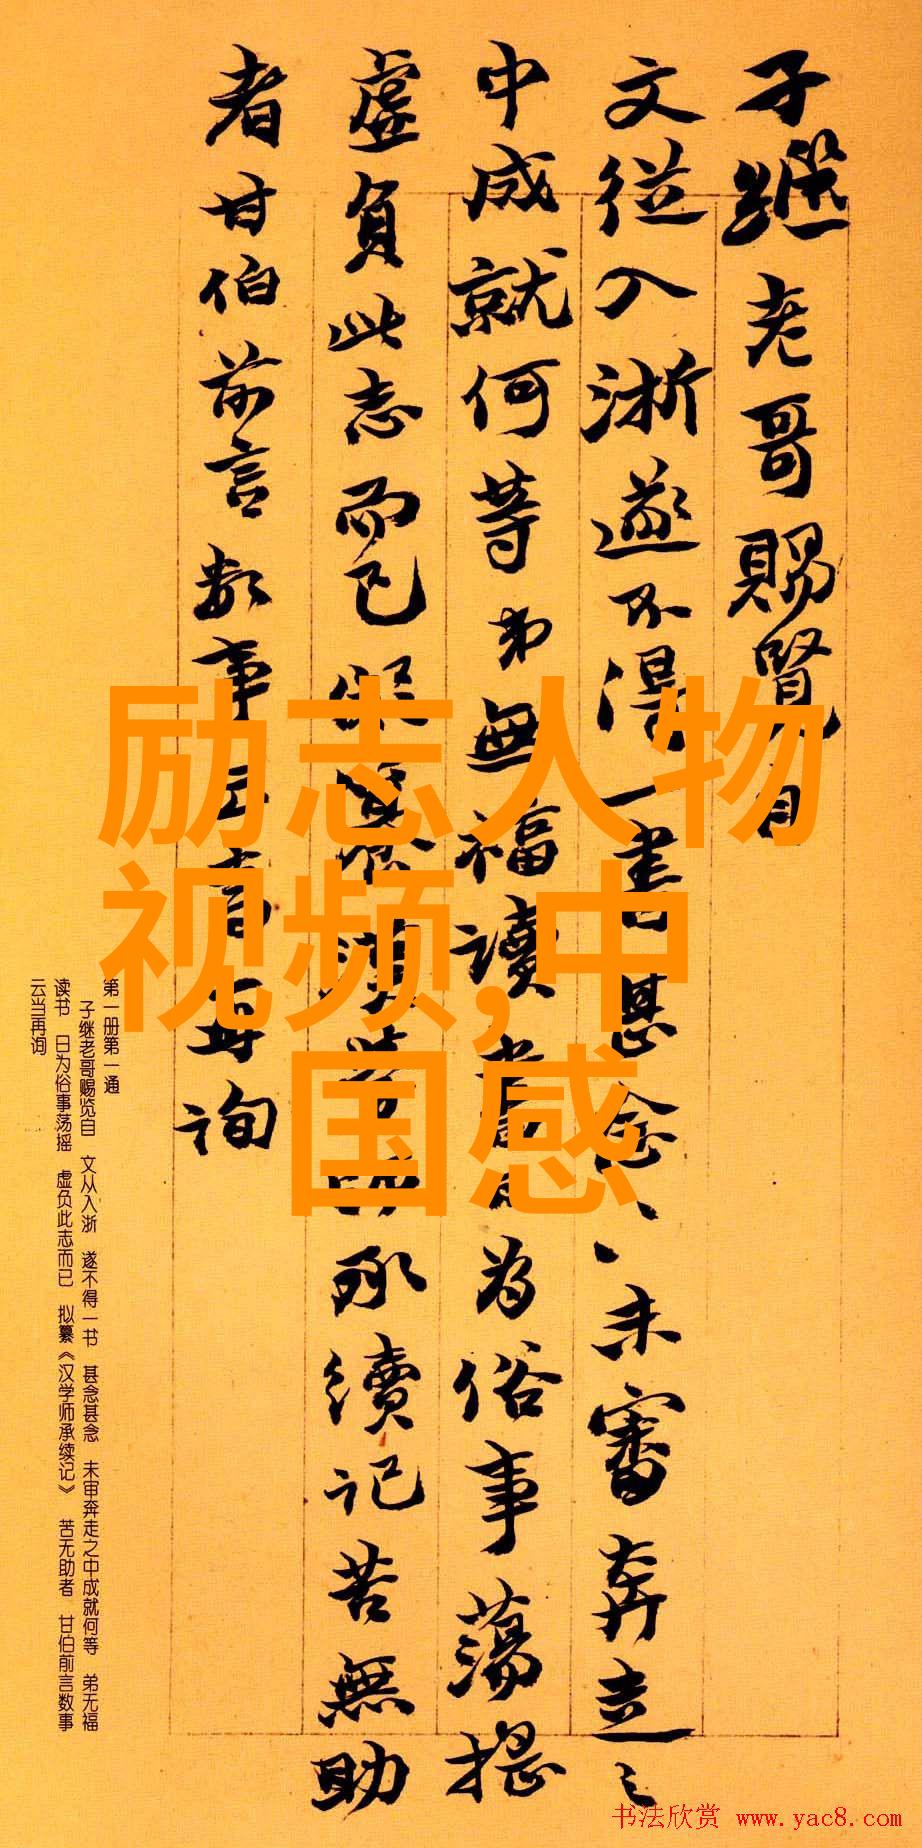 子繼老哥賜覽自
文從入浙遂不得一書甚念〻未審奔走之
中成就何等弟無福讀書日為俗事蕩搖
虛負此志而已擬纂漢學師承續記苦無助
者甘伯前言數事云當再詢
励志人物
视频,中
国感
第一册第一通
子继老哥赐览自 文从入浙 遂不得一书 甚念甚念 未审奔走之中成就何等 弟无福
读书 日为俗事荡摇 虚负此志而已 拟纂《汉学师承续记》 苦无助者 甘伯前言数事
云当再询
书法欣赏 www.yac8.com